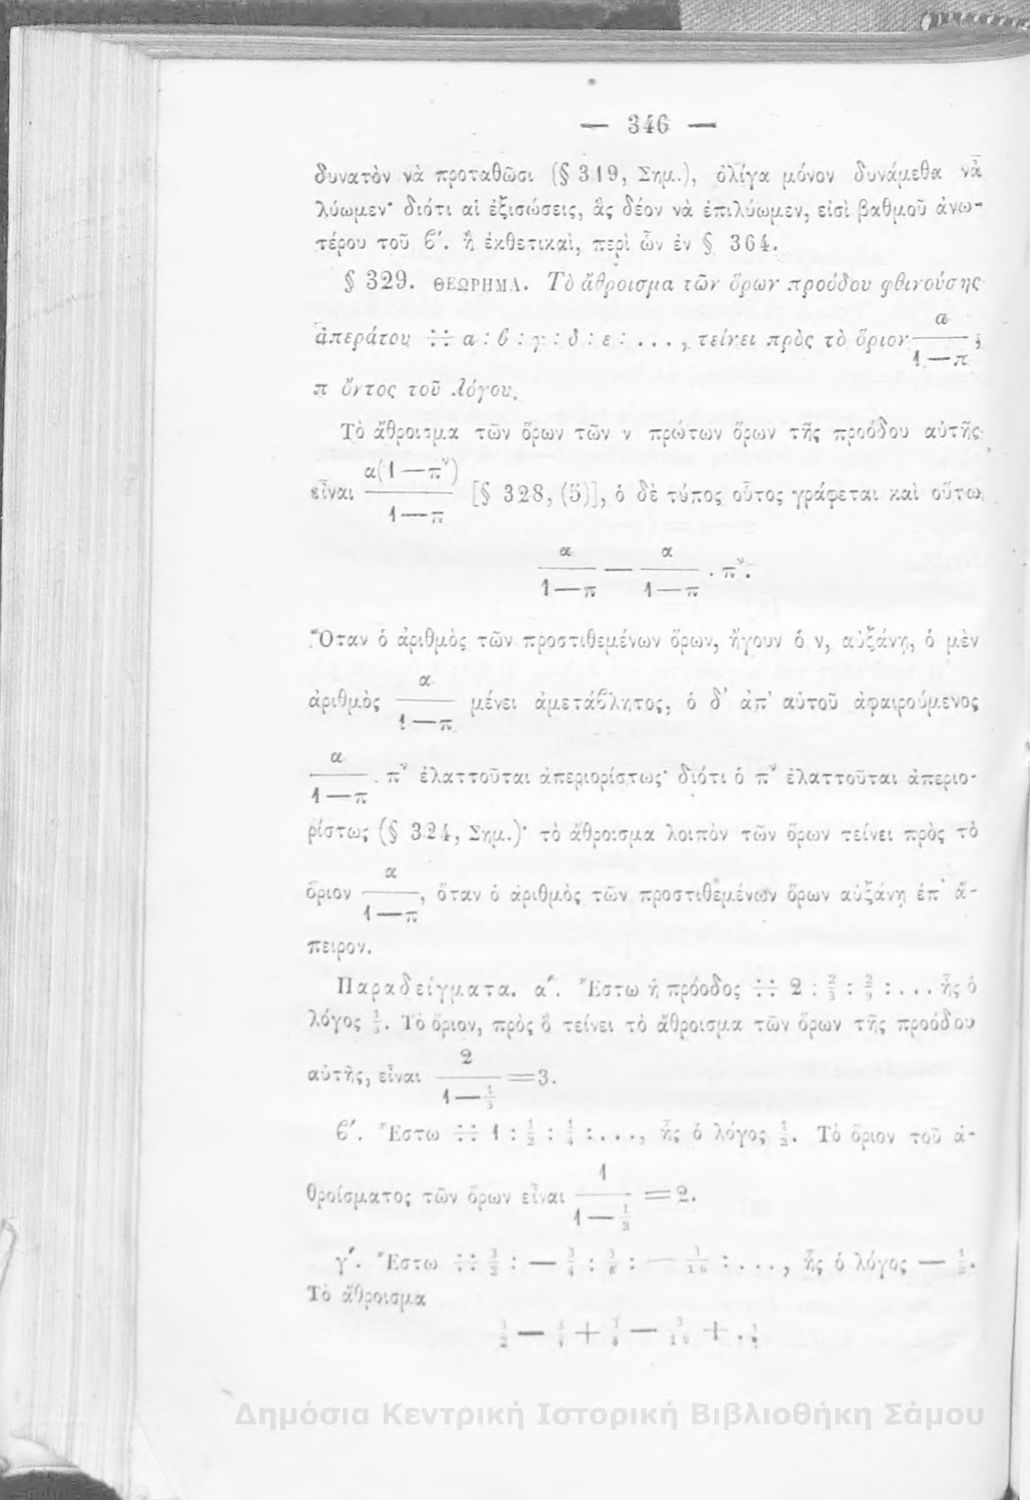 — 346 —
δυνατὸν νὰ προταθῶσι (§ 319, Σημ.), ὀλίγα μόνον δυνάμεθα νὰ
λύωμεν· διότι αἱ ἐξισώσεις, ἃς δέον νὰ ἐπιλύωμεν, εἰσὶ βαθμοῦ ἀνω-
τέρου τοῦ ϐ′. ἢ ἐκθετικαὶ, περὶ ὧν ἐν § 364.
§ 329. ΘΕΩΡΗΜΑ. Τὸ ἄθροισμα τῶν ὅρων προόδου φθινούσης
ἀπεράτου ∺ α : ϐ : γ : δ : ε : . . . , τείνει πρὸς τὸ ὅριον α/(1—π),
π ὄντος τοῦ λόγου.
Τὸ ἄθροισμα τῶν ὅρων τῶν ν πρώτων ὅρων τῆς προόδου αὐτῆς
εἶναι α(1—π^ν)/(1—π) [§ 328, (5)], ὁ δὲ τύπος οὗτος γράφεται καὶ οὕτω
α/(1—π) — α/(1—π) . π^ν.
Ὅταν ὁ ἀριθμὸς τῶν προστιθεμένων ὅρων, ἤγουν ὁ ν, αὐξάνῃ, ὁ μὲν
ἀριθμὸς α/(1—π) μένει ἀμετάϐλητος, ὁ δ' ἀπ' αὐτοῦ ἀφαιρούμενος
α/(1—π) . π^ν ἐλαττοῦται ἀπεριορίστως· διότι ὁ π^ν ἐλαττοῦται ἀπεριο-
ρίστως (§ 324, Σημ.)· τὸ ἄθροισμα λοιπὸν τῶν ὅρων τείνει πρὸς τὸ
ὅριον α/(1—π), ὅταν ὁ ἀριθμὸς τῶν προστιθεμένων ὅρων αὐξάνῃ ἐπ' ἄ-
πειρον.
Παραδείγματα. α′. Ἔστω ἡ πρόοδος ∺ 2 : 2/3 : 2/9 : . . . ἧς ὁ
λόγος 1/3. Τὸ ὅριον, πρὸς ὃ τείνει τὸ ἄθροισμα τῶν ὅρων τῆς προόδου
αὐτῆς, εἶναι 2/(1—1/3) =3.
ϐ′. Ἔστω ∺ 1 : 1/2 : 1/4 : . . . , ἧς ὁ λόγος 1/2. Τὸ ὅριον τοῦ ἀ-
θροίσματος τῶν ὅρων εἶναι 1/(1—1/2) =2.
γ′. Ἔστω ∺ 3/2 : — 3/4 : 3/8 : — 3/16 : . . . , ἧς ὁ λόγος — 1/2.
Τὸ ἄθροισμα
3/2 — 3/4 + 3/8 — 3/16 + . .
Δημόσια Κεντρική Ιστορική Βιβλιοθήκη Σάμου